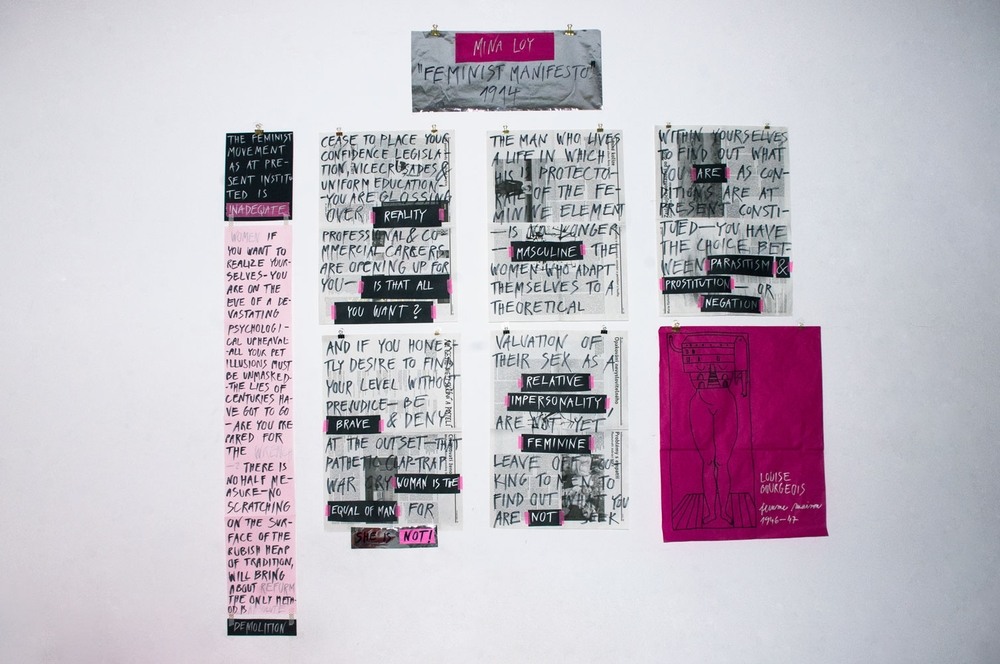 MINA LOY
"FEMINIST MANIFESTO"
1914
THE FEMINIST
MOVEMENT
AS AT PRE-
SENT INSTITU
TED IS
INADEQUATE
WOMEN IF
YOU WANT TO
REALIZE YOUR-
SELVES-YOU
ARE ON THE
EVE OF A DE-
VASTATING
PSYCHOLOGI-
CAL UPHEAVAL
-ALL YOUR PET
ILLUSIONS MUST
BE UNMASKED-
-THE LIES OF
CENTURIES HA-
VE GOT TO GO
-ARE YOU PRE
PARED FOR
THE
THERE IS
NO HALF ME-
ASURE-NO
SCRATCHING
ON THE SUR-
FACE OF THE
RUBISH HEAP
OF TRADITION,
WILL BRING
ABOUT REFORM
THE ONLY METH-
OD IS
DEMOLITION
CEASE TO PLACE YOUR
CONFIDENCE LEGISLA-
TION, VICECRUSADES &
UNIFORM EDUCATION-
-YOU ARE GLOSSING
OVER REALITY
PROFESSIONAL & CO-
MMERCIAL CAREERS
ARE OPENING UP FOR
YOU- IS THAT ALL
YOU WANT?
AND IF YOU HONES
TLY DESIRE TO FIND
YOUR LEVEL WITHO
PREJUDICE- BE
BRAVE & DENY
AT THE OUTSET-THAT
PATHETIC CLAP-TRAP
WAR CRY WOMAN IS THE
EQUAL OF MAN FOR
SHE IS NOT!
THE MAN WHO LIVES
A LIFE IN WHICH
HIS PROTECTO-
RATE OF THE FE-
MININE ELEMENT
-IS NO LONGER
MASCULINE- THE
WOMEN WHO ADAPT
THEMSELVES TO A
THEORETICAL
VALUATION OF
THEIR SEX AS A
RELATIVE
IMPERSONALITY
ARE NOT YET
FEMININE
LEAVE OFF LOO-
KING TO MEN TO
FIND OUT WHAT YOU
ARE NOT SEEK
WITHIN YOURSELVES
TO FIND OUT WHAT
YOU ARE AS CON-
DITIONS ARE AT
PRESENT CONSTI-
TUED-YOU HAVE
THE CHOICE BET-
WEEN PARASITISM &
PROSTITUTION- OR
NEGATION
LOUISE
BOURGEOIS
femme maison
1946-47